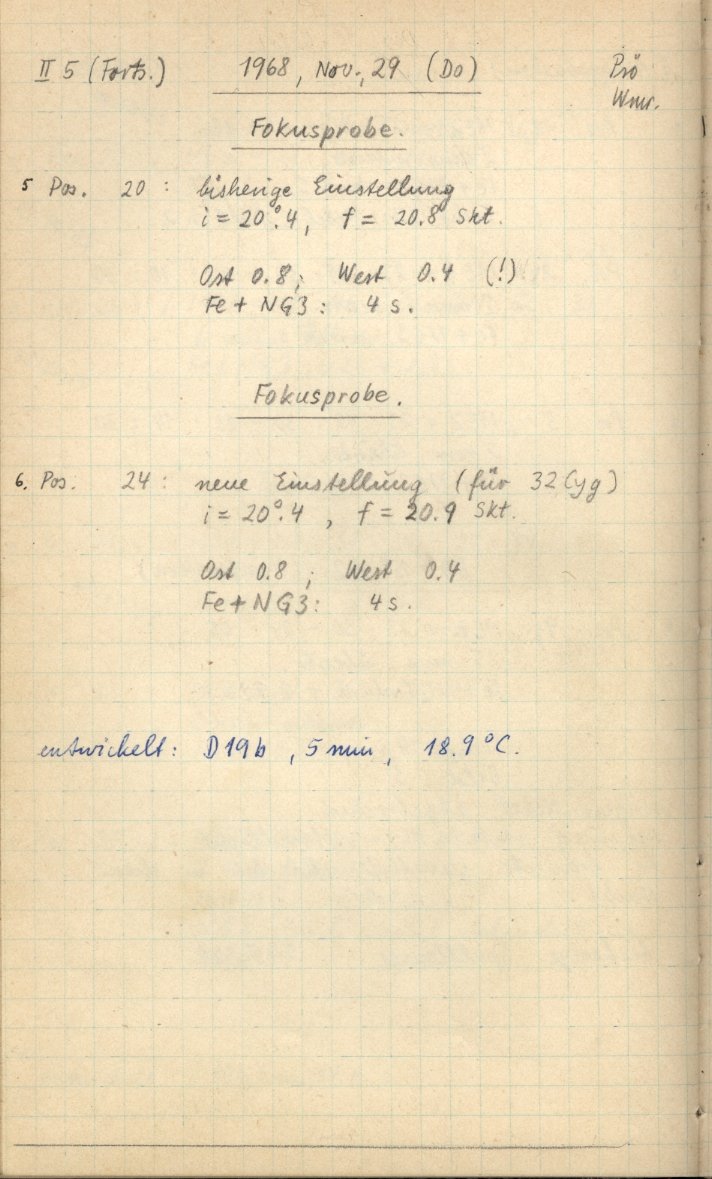 II 5 (Forts.) 1968, Nov., 29 (Do) Prö
Wmr.
Fokusprobe.
5 Pos. 20 : bisherige Einstellung
i = 20°.4, f = 20.8 Skt.
Ost 0.8; West 0.4 (!)
Fe + NG3: 4 s.
Fokusprobe.
6. Pos. 24 : neue Einstellung (für 32 Cyg)
i = 20°.4 , f = 20.9 Skt.
Ost 0.8 ; West 0.4
Fe + NG3: 4 s.
entwickelt: D19b , 5 min , 18.9 °C.